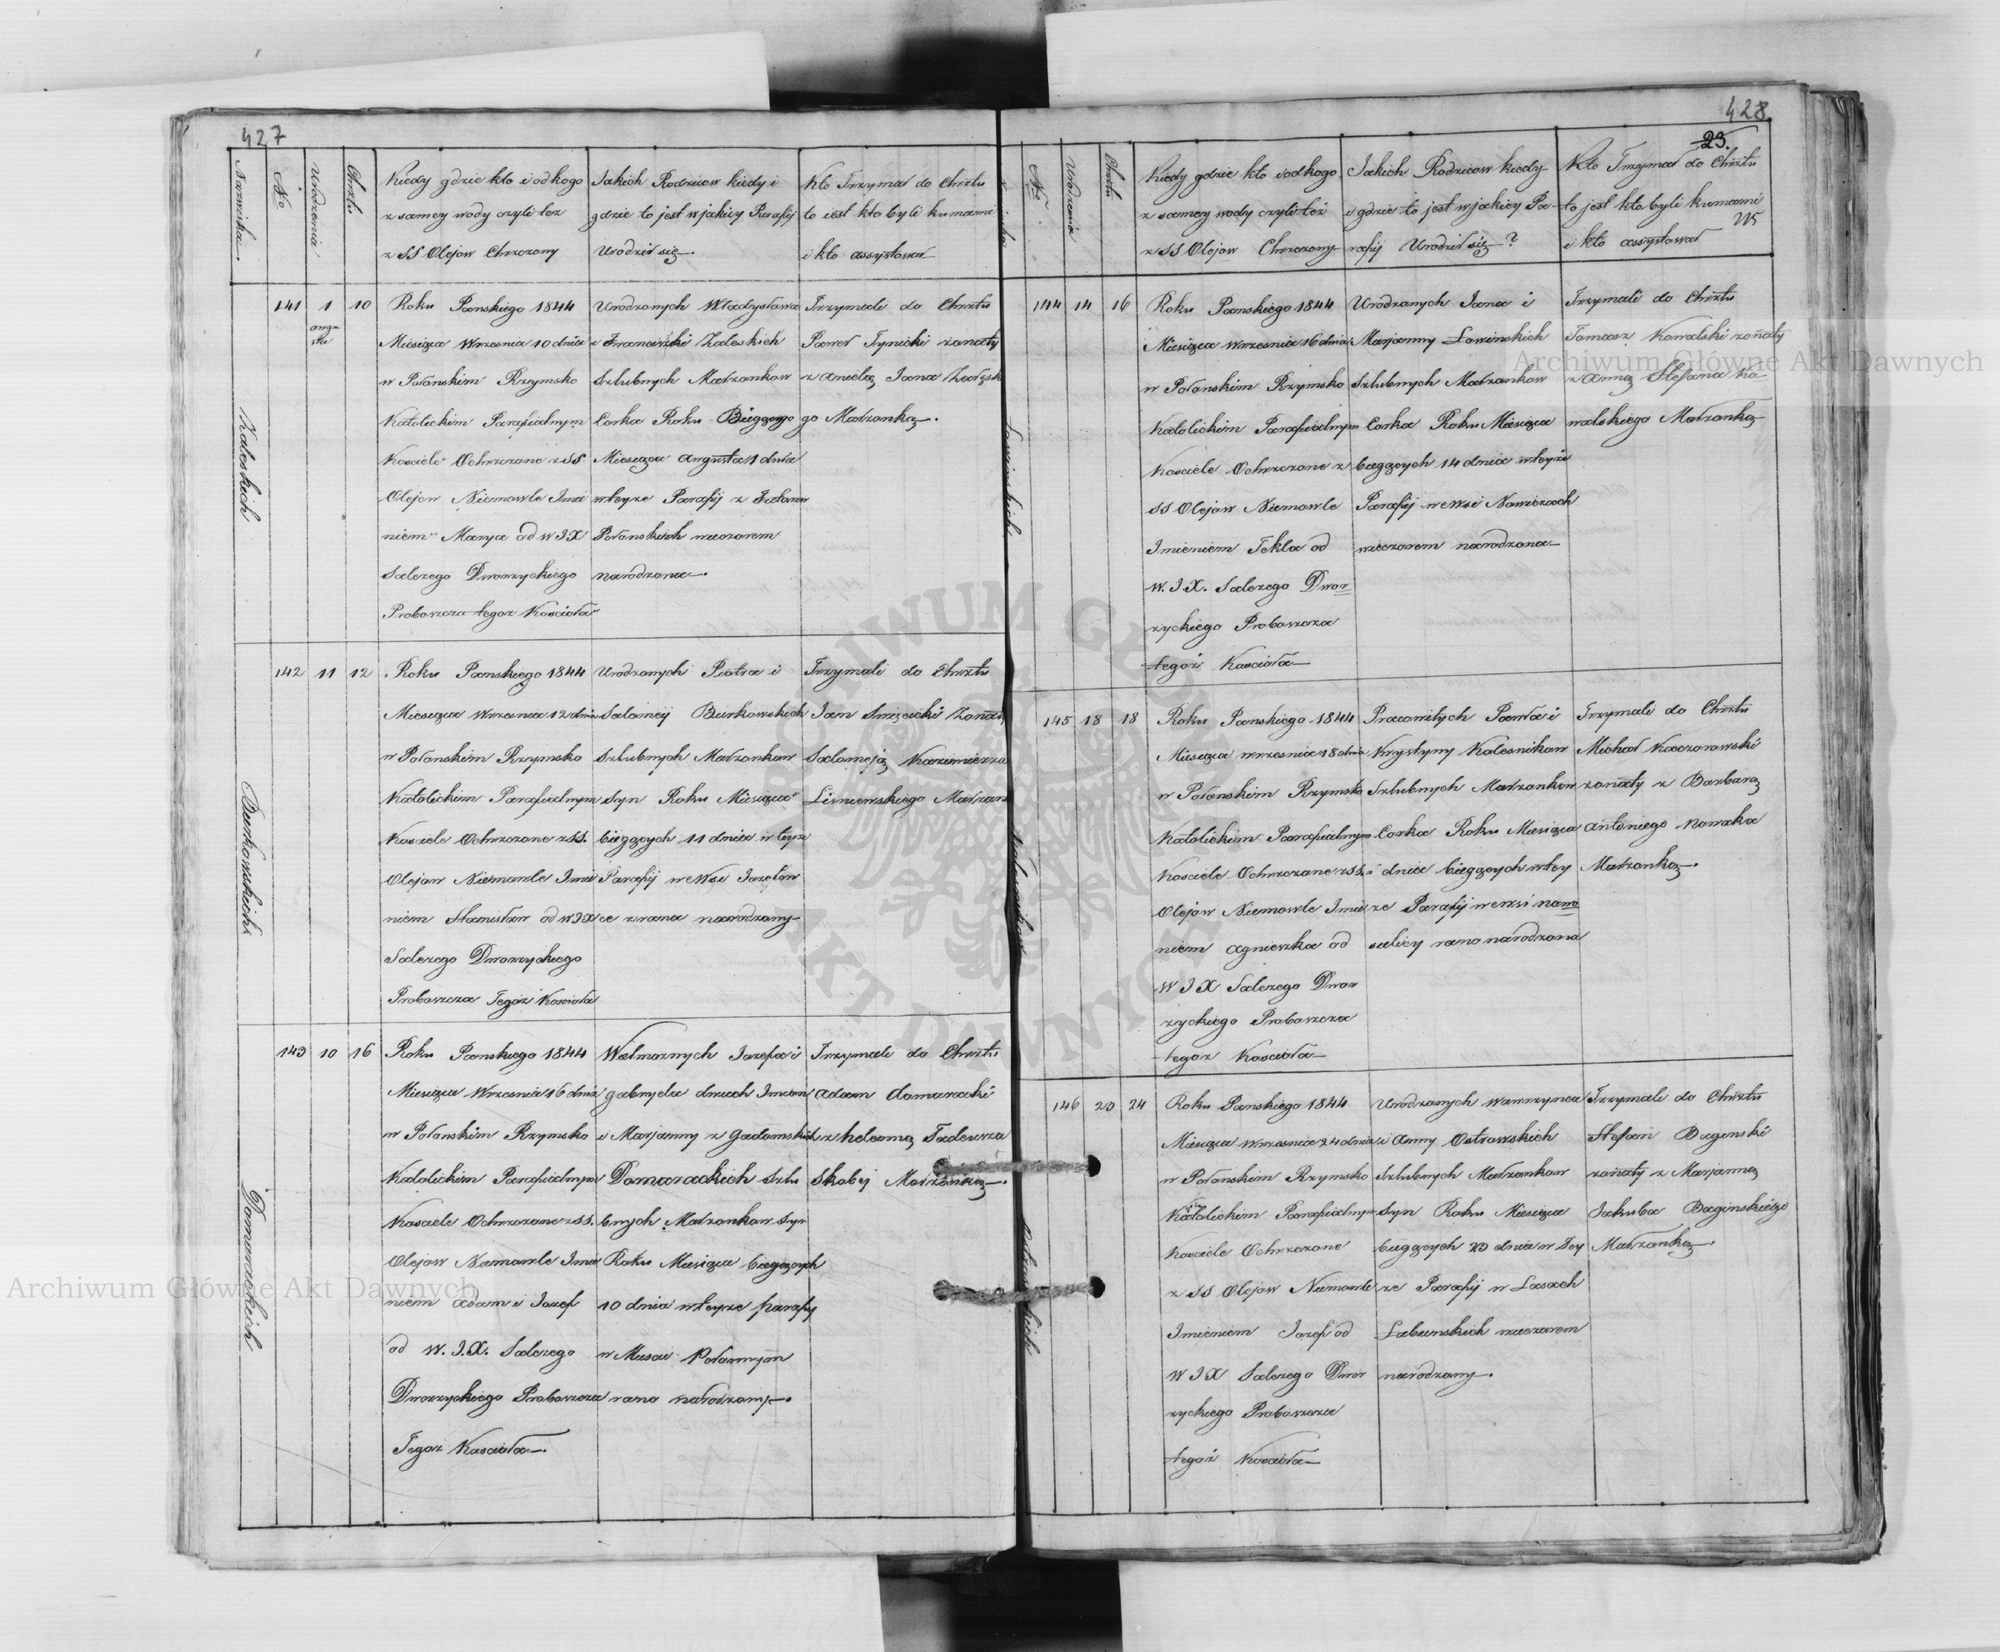 427
Nazwiska
No
Urodzenia
Chrztu
Kiedy gdzie kto i od kogo
z samey wody czyli też
z SS Olejow Chrzczony
Jakich Rodzicow kiedy i
gdzie to jest w jakiey Parafij
Urodził się
Kto Trzymał do Chrztu
to iest kto byli kumami
i kto assystował
Zaleskich
141
1
augu
sta
10
Roku Panskiego 1844
Miesiąca Wrzesnia 10 dnia
w Polanskim Rzymsko
Katolickim Parafialnym
Kosciele Ochrzczone z SS.
Olejow Niemowle Imie
niem Marya od W JX
Salezego Dworzyckiego
Proboszcza tegoz Koscioła
Urodzonych Władysława
i Franciszki Zaleskich
Szlubnych Małzonkow
Corka Roku Biegącego
Miesiąca Augusta 1 dnia
w teyze Parafij z
Polanskich wieczorem
narodzona.
Trzymali do Chrztu
Paweł Tynicki zonaty
z Anielą Jana
go Małzonką.
Burkowskich
142
11
12
Roku Panskiego 1844
Miesiąca Wrzesnia 12 dnia
w Polanskim Rzymsko
Katolickim Parafialnym
Kosciele Ochrzczone z SS.
Olejow Niemowle Imie
niem Stanisław od W JX
Salezego Dworzyckiego
Proboszcza Tegoz Kosciola
Urodzonych Piotra i
Salomeij Burkowskich
Szlubnych Małzonkow
Syn Roku Miesiąca
biegących 11 dnia w teyze
Parafij we Wsi Jozefow
ce z rana narodzony
Trzymali do Chrztu
Jan
Salomeją Kazimierza
Lisniewskiego Małzon
Domarackich
143
10
16
Roku Panskiego 1844
Miesiąca Wrzesnia 16 dnia
w Polanskim Rzymsko
Katolickim Parafialnym
Kosciele Ochrzczone z SS.
Olejow Niemowle Imie
niem Adam i Jozef
od W. J.X. Salezego
Dworzyckiego Proboszcza
Tegoz Kosciola.
Wielmoznych Jozefa i
Gabryela dwuch Imion
i Marjanny z Gadomskich
Domarackich Szlu
bnych Małzonkow Syn
Roku Miesiąca biegących
10 dnia w teyze parafij
w Miescie
rano narodzony.
Trzymali do Chrztu
Adam Domaracki
z heleną Tadeusza
Skabij Małzonką.
428
23.
215
No
Urodzenia
Chrztu
Kiedy gdzie kto i od kogo
z samey wody czyli też
z SS Olejow Chrzczony
Jakich Rodzicow kiedy
i gdzie to jest w jakiey Pa
rafij Urodził się?
Kto Trzymał do Chrztu
to jest kto byli kumami
i kto assystował
Łowinskich
144
14
16
Roku Panskiego 1844
Miesiąca Wrzesnia 16 dnia
w Polanskim Rzymsko
Katolickim Parafialnym
Kosciele Ochrzczone z
SS Olejow Niemowle
Imieniem Tekla od
W. J X. Salezego Dwor
zyckiego Proboszcza
tegoż Kosciola
Urodzonych Jana i
Marjanny Łowinskich
Szlubnych Małzonkow
Corka Roku Miesiąca
biegących 14 dnia w teyże
Parafij we Wsi Nawozach
wieczorem narodzona
Trzymali do Chrztu
Tomasz Kowalski zonaty
z Anną Stefana Ko
walskiego Małzonką
Kolesnikow
145
18
18
Roku Panskiego 1844
Miesiąca wrzesnia 18 dnia
w Polanskim Rzymsko
Katolickim Parafialnym
Kosciele Ochrzczone z SS.
Olejow Niemowle Imie
niem Agnieszka od
W J X Salezego Dwor
zyckiego Proboszcza
tegoz Kosciola
Pracowitych Pawła i
Krystyny Kolesnikow
Szlubnych Małzonkow
Corka Roku Miesiąca
i dnia biegących w tey
ze Parafij we wsi nowo
sielicy rano narodzona
Trzymali do Chrztu
Michał Kaczorowski
zonaty z Barbarą
Antoniego Nowaka
Małzonką.
Ostrowskich
146
23
24
Roku Panskiego 1844
Miesiąca Wrzesnia 24 dnia
w Polanskim Rzymsko
Katolickim Parafialnym
Kosciele Ochrzczone
z SS Olejow Niemowle
Imieniem Jozef od
W J X Salezego Dwor
zyckiego Proboszcza
tegoż Kosciola
Urodzonych Wawrzynca
i Anny Ostrowskich
Szlubnych Małzonkow
Syn Roku Miesiąca
biegących 23 dnia w Tey
ze Parafij w Lasach
Łabunskich wieczorem
narodzony.
Trzymali do Chrztu
Stefan Baginski
zonaty z Marjanną
Jakuba Baginskiego
Małzonką.
Archiwum Główne Akt Dawnych
Archiwum Główne Akt Dawnych
ARCHIWUM GŁÓWNE
AKT DAWNYCH